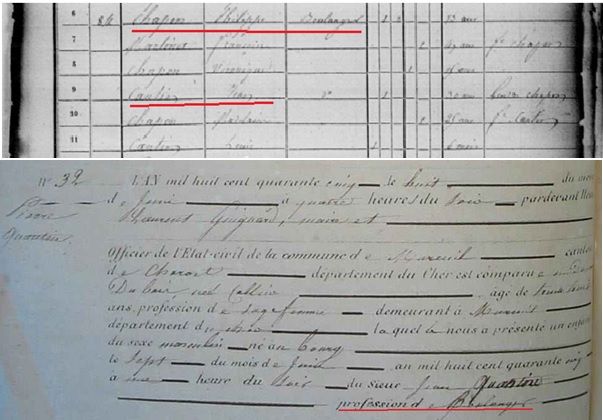 6 84 Chapon Philippe Boulanger 1 1 53 ans
7 Françoise 1 49 ans fe Chapon
8 Chapon Véronique 1
9 Cantin Jean do 1 30 ans Chapon
10 Chapon 1 26 ans fe Cantin
11 Cantin Louis 1 6 mois
n° 32
Pierre
Quantin
L'AN mil huit cent quarante cinq le huit du mois
d e Juin à quatre heures du soir pardevant Nous
Laurent Guignard, maire et
Officier de l'Etat-civil de la commune d e Mareuil canton
d e Charost département du Cher est comparu e
Dubois née âgée de
ans, profession d e sage femme demeurant à Mareuil
département du Cher laquel le nous a présenté un enfant
du sexe masculin né au bourg
le sept du mois de Juin an mil huit cent quarante cinq
à une heure du soir du sieur Jean Quantin
profession d e Boulanger